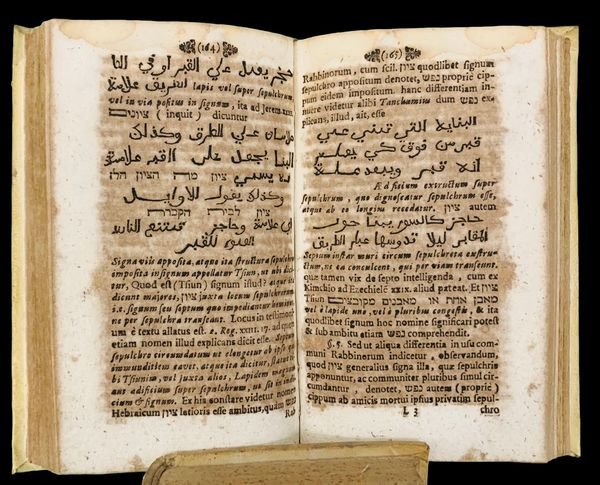 (164)
حجر يعمل علي القبر او في
الطريق علامة lapis vel super sepulchrum
vel in via positus in signum, ita ad Jerem.
ציונים (inquit) dicuntur
علي الطرق وكذلك
البنا يجعل علي القبر علامة
يسمي ציון מה הציון הלז
وكذلك يقول الاوايل
ציון לבית הקברות
علامة وحاجز
للقبر
Signa viis apposita, atque ita structura sepulchro
imposita in signum appellatur Tsiun, ut ibi dicitur,
Quod est (Tsiun) signum istud? atque ita
dicunt majores, ציון juxta locum sepulchrorum
i.e. signum seu septum quo impediantur homines
ne per sepulchra transeant. Locus in testimonium
è textu allatus est. 2. Reg. XXIII. 17. ad quem
etiam nomen illud explicans dicit esse. Septum
sepulchro circumdatum ut elongetur ab ipso qui
immunditiem cavet, atque ita dicitur,
bi Tsiunim, vel juxta alios, Lapidem
aut ædificium super sepulchrum, ut sit in
cium & signum. Ex his constare videtur nomen
Hebraicum ציון latioris esse ambitus, quàm נפש
Rab
(165)
Rabbinorum, cum scil. ציון quodlibet signum
sepulchro appositum denotet, נפש propriè cippum
eidem impositum. hanc differentiam innuere
videtur alibi Tanchumius dum נפש explicans,
illud, ait, esse
البناية التي تبني علي
قبر من فوق كي يعلم
انه قبر ويبعد عنه
Ædificium exstructum super
sepulchrum, quo dignoscatur sepulchrum esse,
atque ab eo longiùs recedatur. ציון autem
حاجز كالسور يبنا حول
المقابر ليلا تدوسها عابر الطريق
Septum instar muri circum sepulchreta exstructum,
ne ea conculcent, qui per viam transeunt.
quæ tamen vix de septo intelligenda, cum ex
Kimchio ad Ezechielē xxix. aliud pateat. Et ציון
Tsiun מאבן אחת או מאבנים מקובצים
vel è lapide uno, vel è pluribus congestis, & ita
quodlibet signum hoc nomine significari potest
& sub ambitu etiam נפש comprehendit.
§. 5. Sed ut aliqua differentia in usu communi
Rabbinorum indicetur, observandum,
quod ציון generalius signa illa, quæ sepulchris
apponuntur, ac communiter pluribus simul circumdantur,
denotet, נפש autem (propriè)
Cippum ab amicis mortui ipsius privatim sepul-
L 3 chro